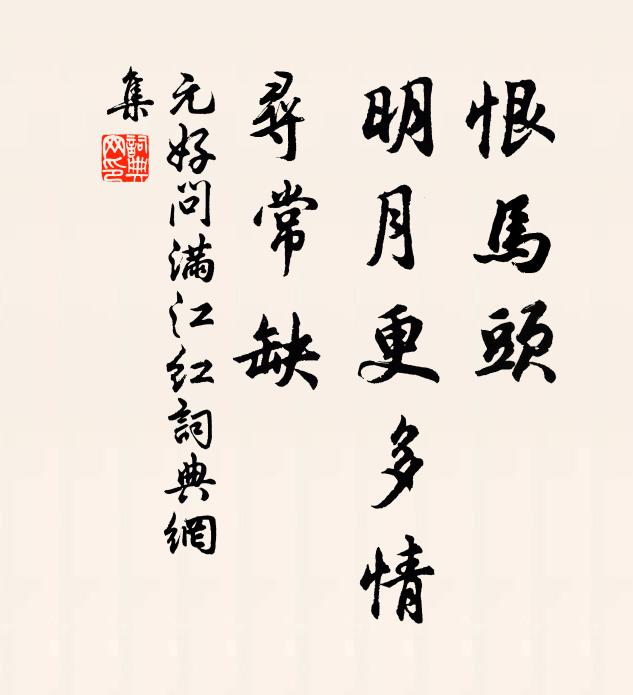 恨馬頭
明月更多情
尋常缺
元好問滿江紅詞典網
集
詞典
网印